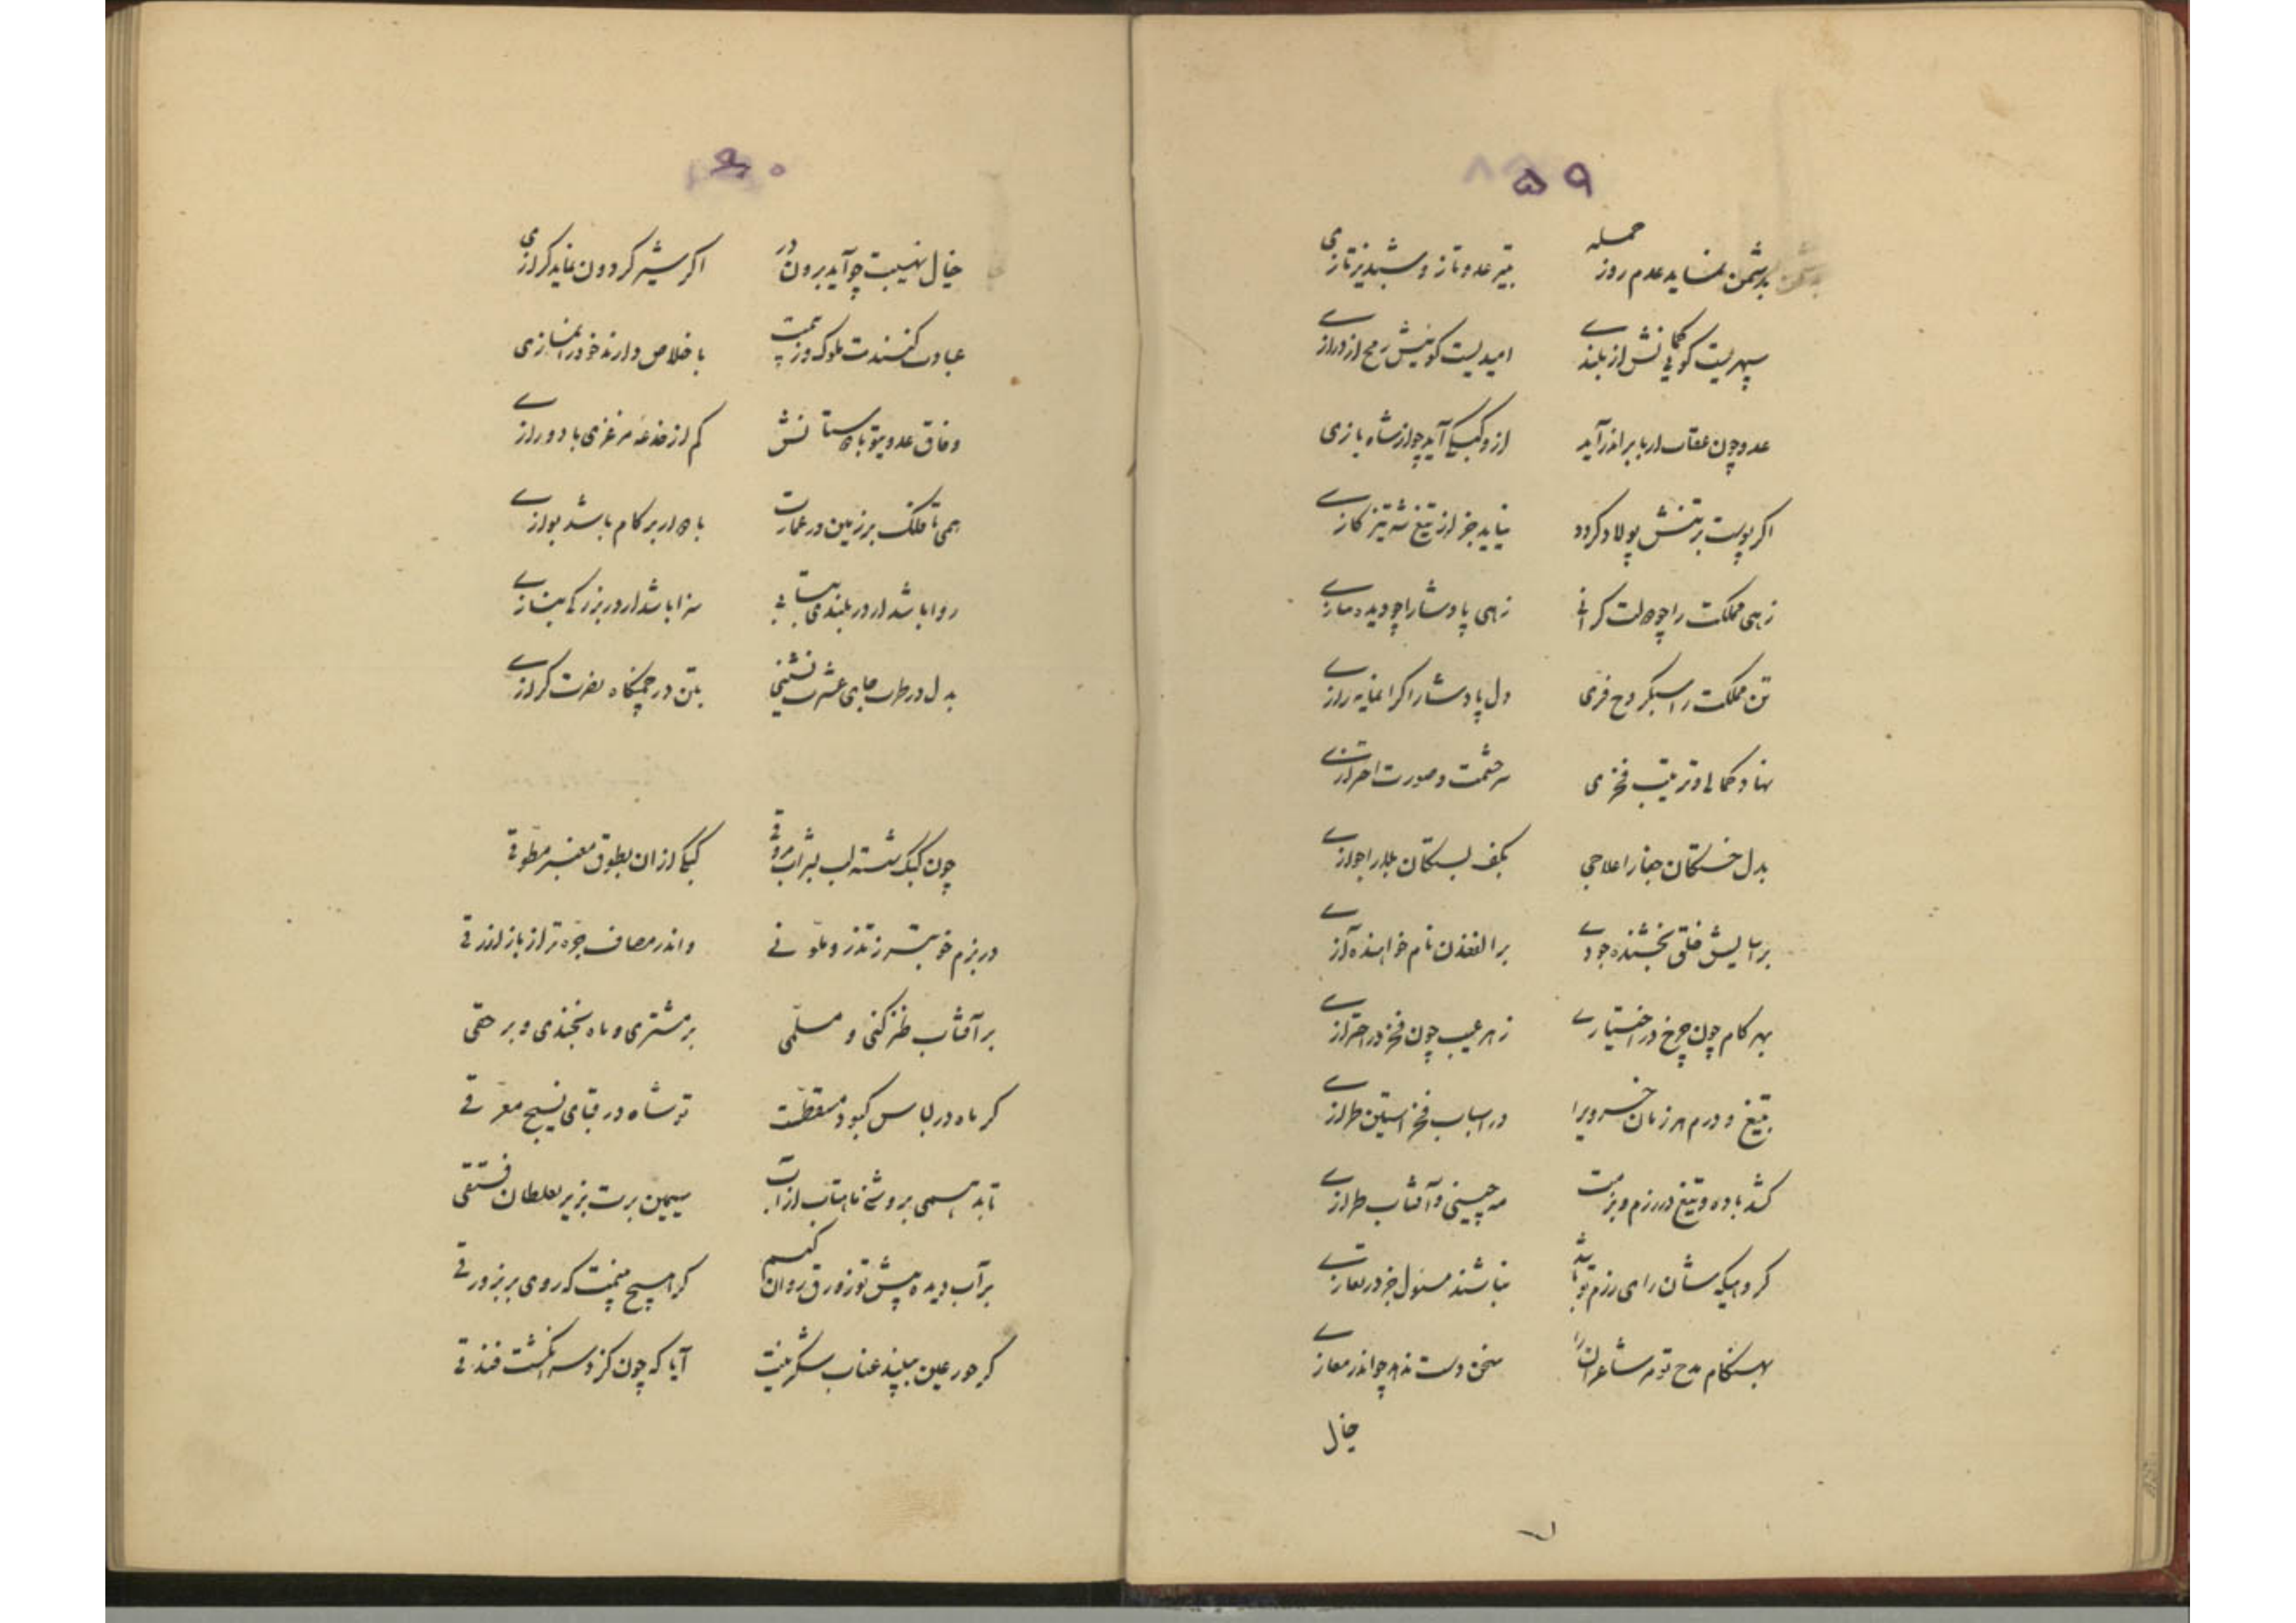 ۵۹
بدشمن نماید عدم روز حمله بتیر عدو تاز و شبدیز تازی
سپهریست کوپی نش از بلندی امیدیست کوئیش رمح از درازی
عدو چون عقاب ار بابر اندر آید ازو کبکی آید چو از شاه بازی
اکر پوست بر تنش پولاد کردد نیاید جز از تیغ شه تیز کازی
زهی مملکت را چو دولت کرانی زهی پادشا را چو دیده
تن مملکت را سبکروح فری دل پادشا را کرانمایه رازی
نهاد کمالی و ترتیب فخری سر حشمت و صورت احترازی
بدل خستکان جفا را علاجی بکف بستکان بلا را جوازی
خلق بخشنده جودی نام خواهنده آزی
بهر کام چون چرخ در اختیاری ز هر عیب چون فخر در احترازی
بتیغ و درم هر زمان خسرویرا در اسباب فخر آستین طرازی
کشد باده و تیغ در رزم و بزمت مه چینی و آفتاب طرازی
کروهیکه شان رای رزم تو باشد نباشند مسئول جز در تعازی
بهنکام مدح تو مر شاعران را سخن دست ندهد چو اندر مغازی
خیال
۶۰
خیال نهیبت چو آید برون در اکر شیر کردون نماید کرازی
عبادت کنندت ملوک و ز بیمت باخلاص دارند خود را نمازی
وفاق عدو با تو باد کم از خدعه مرغزی با دو رازی
همی تا فلک بر زمین در عمارت بادوار بر کام باشد بوازی
روا باشد ار در بلندی نتابی سزا باشد ار در بزرکی بنازی
بدل در طرب جای عشرت نشینی بتن در چمنکاه نصرت کرازی
چون کبک شسته لب بشراب مروقی کبکی از ان بطوق معنبر مطوقی
در بزم خوبتر ز تذرو ملونی واندر مصاف چره تر از باز ازرقی
بر آفتاب طنز کنی و مسلمی بر مشتری و ماه بخندی و بر حقی
کر ماه در لباس کبود منقطست تو شاه در قبای نسیج معرقی
تابد همی بروشنی ماهتاب از آب سیمین برت بزیر بغلطاق فستقی
بر آب دیده پیش تو زورق روان کنم کر هیچ بینمت که روی بر بزورقی
کر حور عین بیند عناب شکرینت آیا که چون کزد سر انکشت فندقی